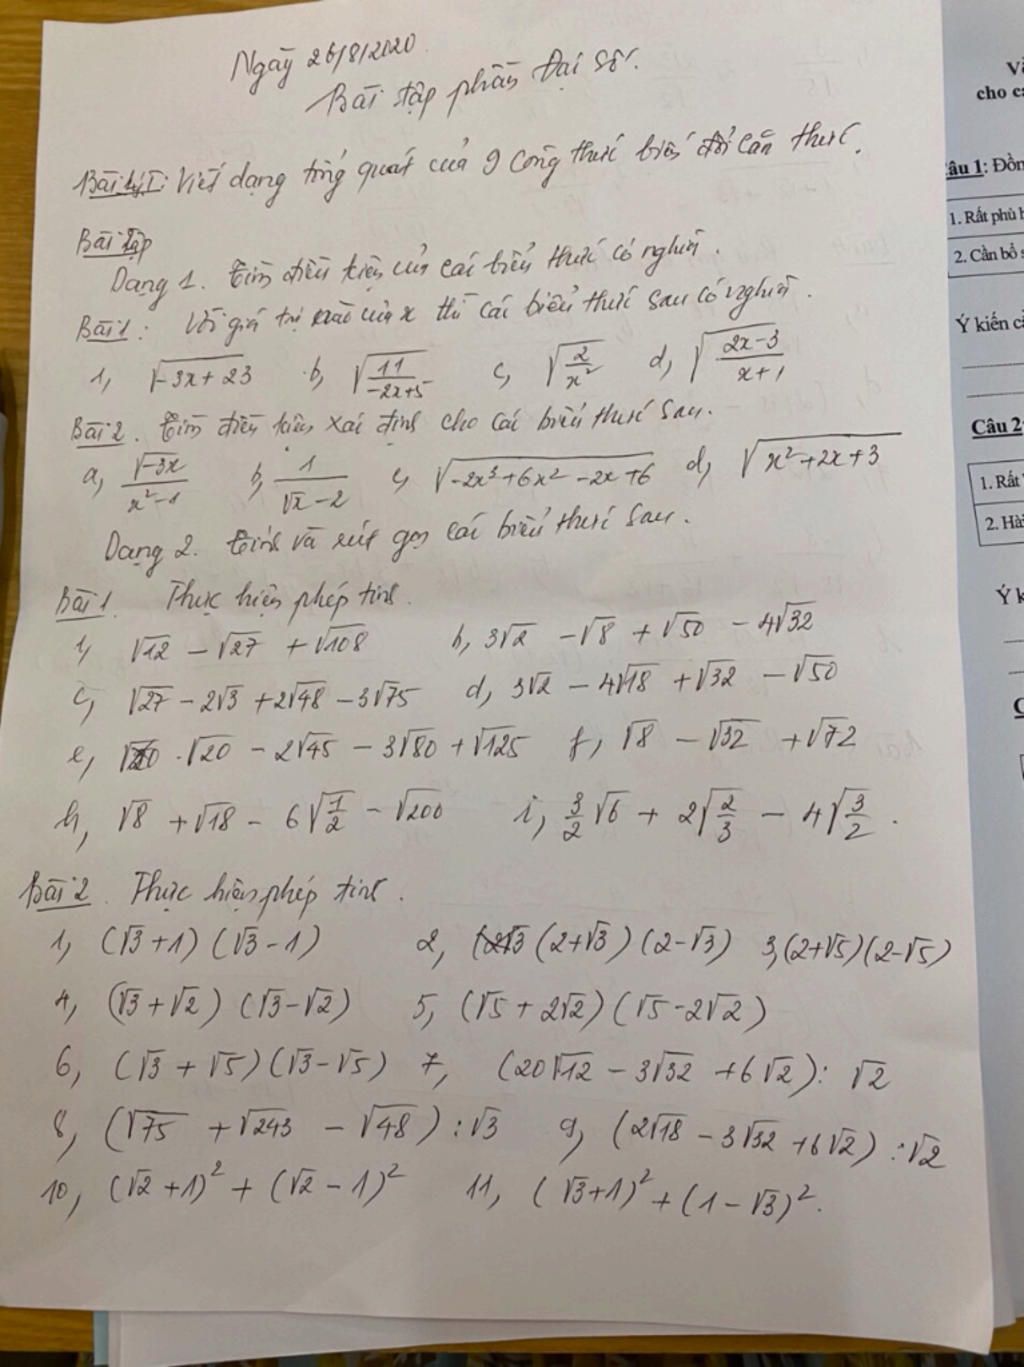 Ngày 26/8/2020.
Bài tập phần Đại số.
Bài I: Viết dạng tổng quát của 9 công thức biến đổi căn thức.
Bài tập
Dạng 1. Tìm điều kiện của các biểu thức có nghĩa.
Bài 1: Với giá trị nào của x thì các biểu thức sau có nghĩa.
1, √(-3x+23) b, √(11/(-2x+5)) c, √(2/x²) d, √((2x-3)/(x+1))
Bài 2. Tìm điều kiện xác định cho các biểu thức sau.
a, √(-3x)/(x²-1) b, 1/(√x-2) c, √(-2x³+6x²-2x+6) d, √(x²+2x+3)
Dạng 2. Tính và rút gọn các biểu thức sau.
Bài 1. Thực hiện phép tính.
1, √12 - √27 + √108 b, 3√2 - √8 + √50 - 4√32
c, √27 - 2√3 + 2√48 - 3√75 d, 3√2 - 4√18 + √32 - √50
e, √20 - 2√45 - 3√80 + √125 f, √8 - √32 + √72
h, √8 + √18 - 6√(1/2) - √200 i, 3/2 √6 + 2√(2/3) - 4√(3/2).
Bài 2. Thực hiện phép tính.
1, (√3+1)(√3-1) 2, (2+√3)(2-√3) 3, (2+√5)(2-√5)
4, (√3+√2)(√3-√2) 5, (√5+2√2)(√5-2√2)
6, (√3+√5)(√3-√5) 7, (20√12 - 3√32 + 6√2): √2
8, (√75 + √243 - √48): √3 9, (2√18 - 3√32 + 6√2): √2
10, (√2+1)² + (√2-1)² 11, (√3+1)² + (1-√3)².
cho c
âu 1: Đồn
1. Rất phù h
2. Cần bổ s
Ý kiến c
Câu 2
1. Rất
2. Hà
Ý k